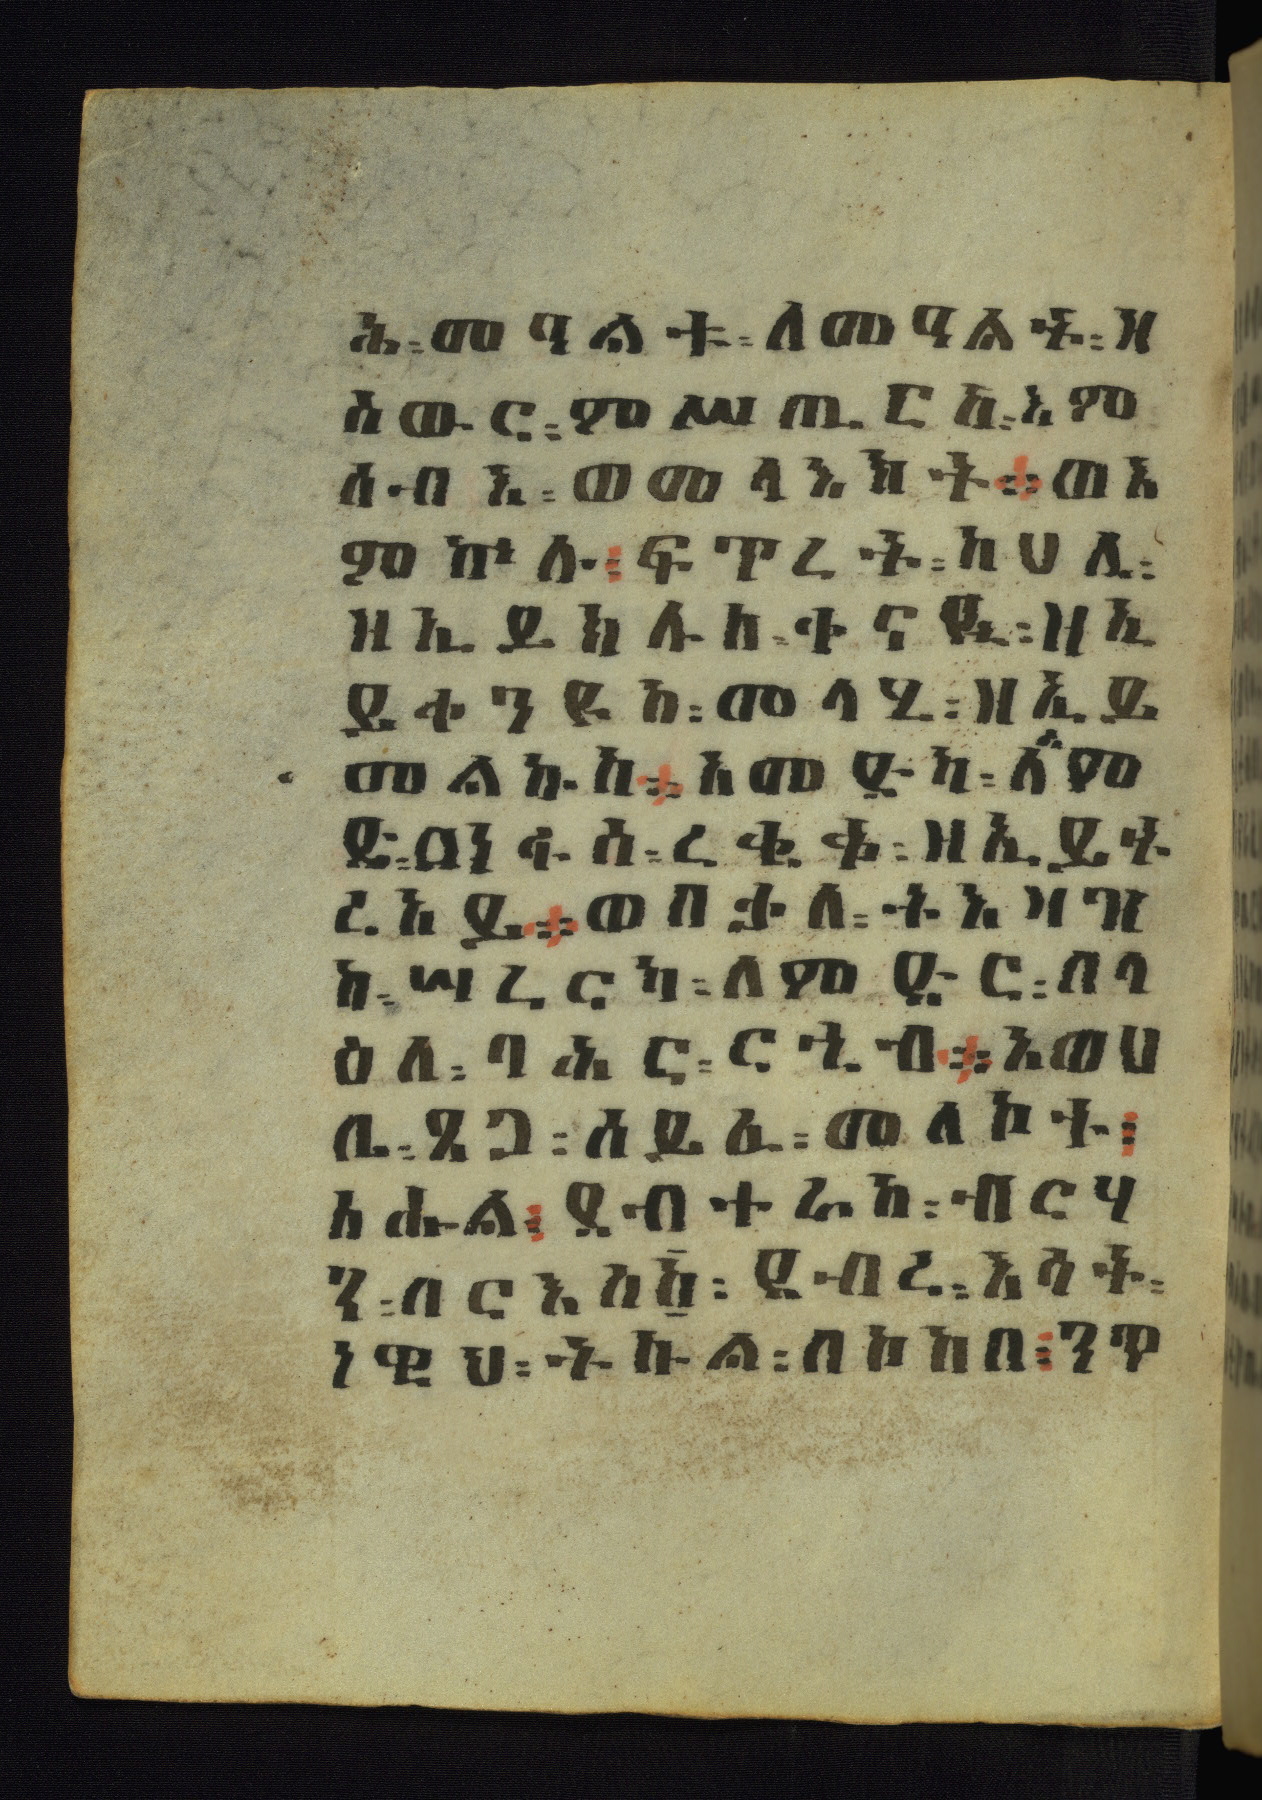 ሕ፡መዓልተ፡ለመዓልት፡ዘ
ስውር፡ምሥጢርከ፡እም
ሰብእ፡ወመላእክት። ወእ
ምኵሉ፤ፍጥረት፡ከሀሊ፡
ዘኢይክሉከ፡ቀናዪ፡ዘኢ
ይቀንዪከ፡መላሂ፡ዘኢይ
መልኩከ። አመድካ፡
ድ፡በነፋስ፡ረቂቅ፡ዘኢይት
ረአይ። ወበቃለ፡ትእዛዝ
ከ፡ሣረርካ፡ለምድር፡በላ
ዕለ፡ባሕር፡ርጢብ። አወሀ
ቤ፡ጸጋ፡ሰይፈ፡መለኮት፤
አሐል፤ ከ፡ብርሃ
ን፡በርእስከ፡ ይብረ፡እሳት፡
ነዊህ፡ትኩል፡በከከበ፤ንጥ